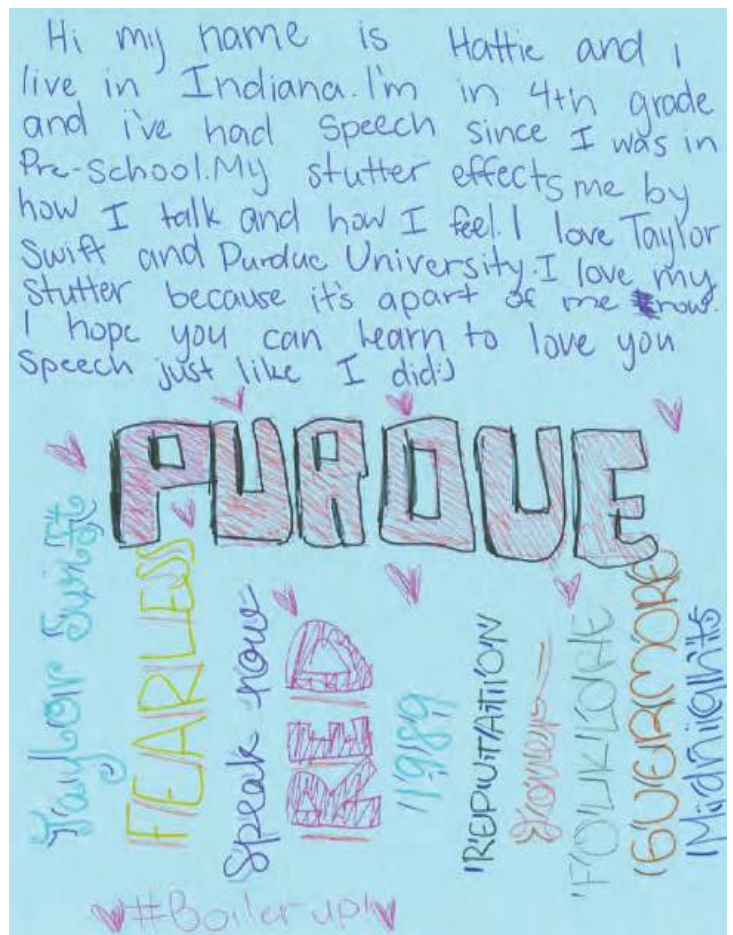 Hi my name is Hattie and i
live in Indiana. I'm in 4th grade
and i've had Speech since I was in
Pre-School. My stutter effects me by
how I talk and how I feel. I love Taylor
Swift and Purdue University. I love my
Stutter because it's apart of me now.
I hope you can learn to love you
Speech just like I did:)
PURDUE
Taylor Swift
FEARLESS
Speak now
RED
1989
REPUTATION
Lover
FOLKLORE
EVERMORE
Midnights
#Boiler up!